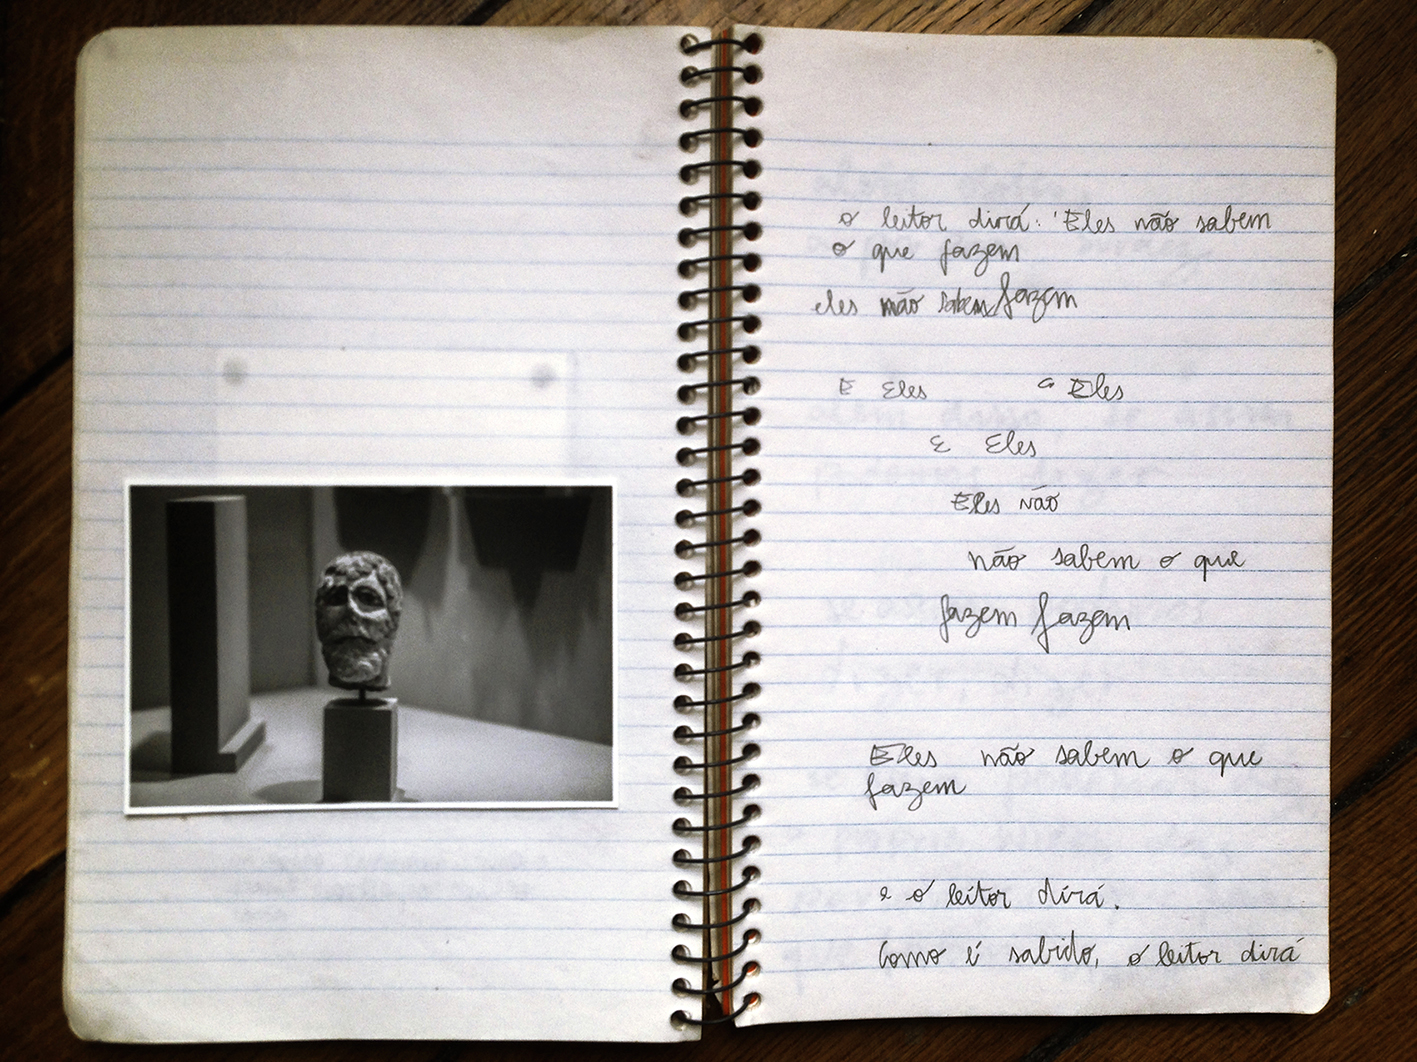 o leitor dirá: 'Eles não sabem
o que fazem
eles não sabem fazem
E Eles a Eles
E Eles
Eles não
não sabem o que
fazem fazem
Eles não sabem o que
fazem
e o leitor dirá.
Como é sabido, o leitor dirá